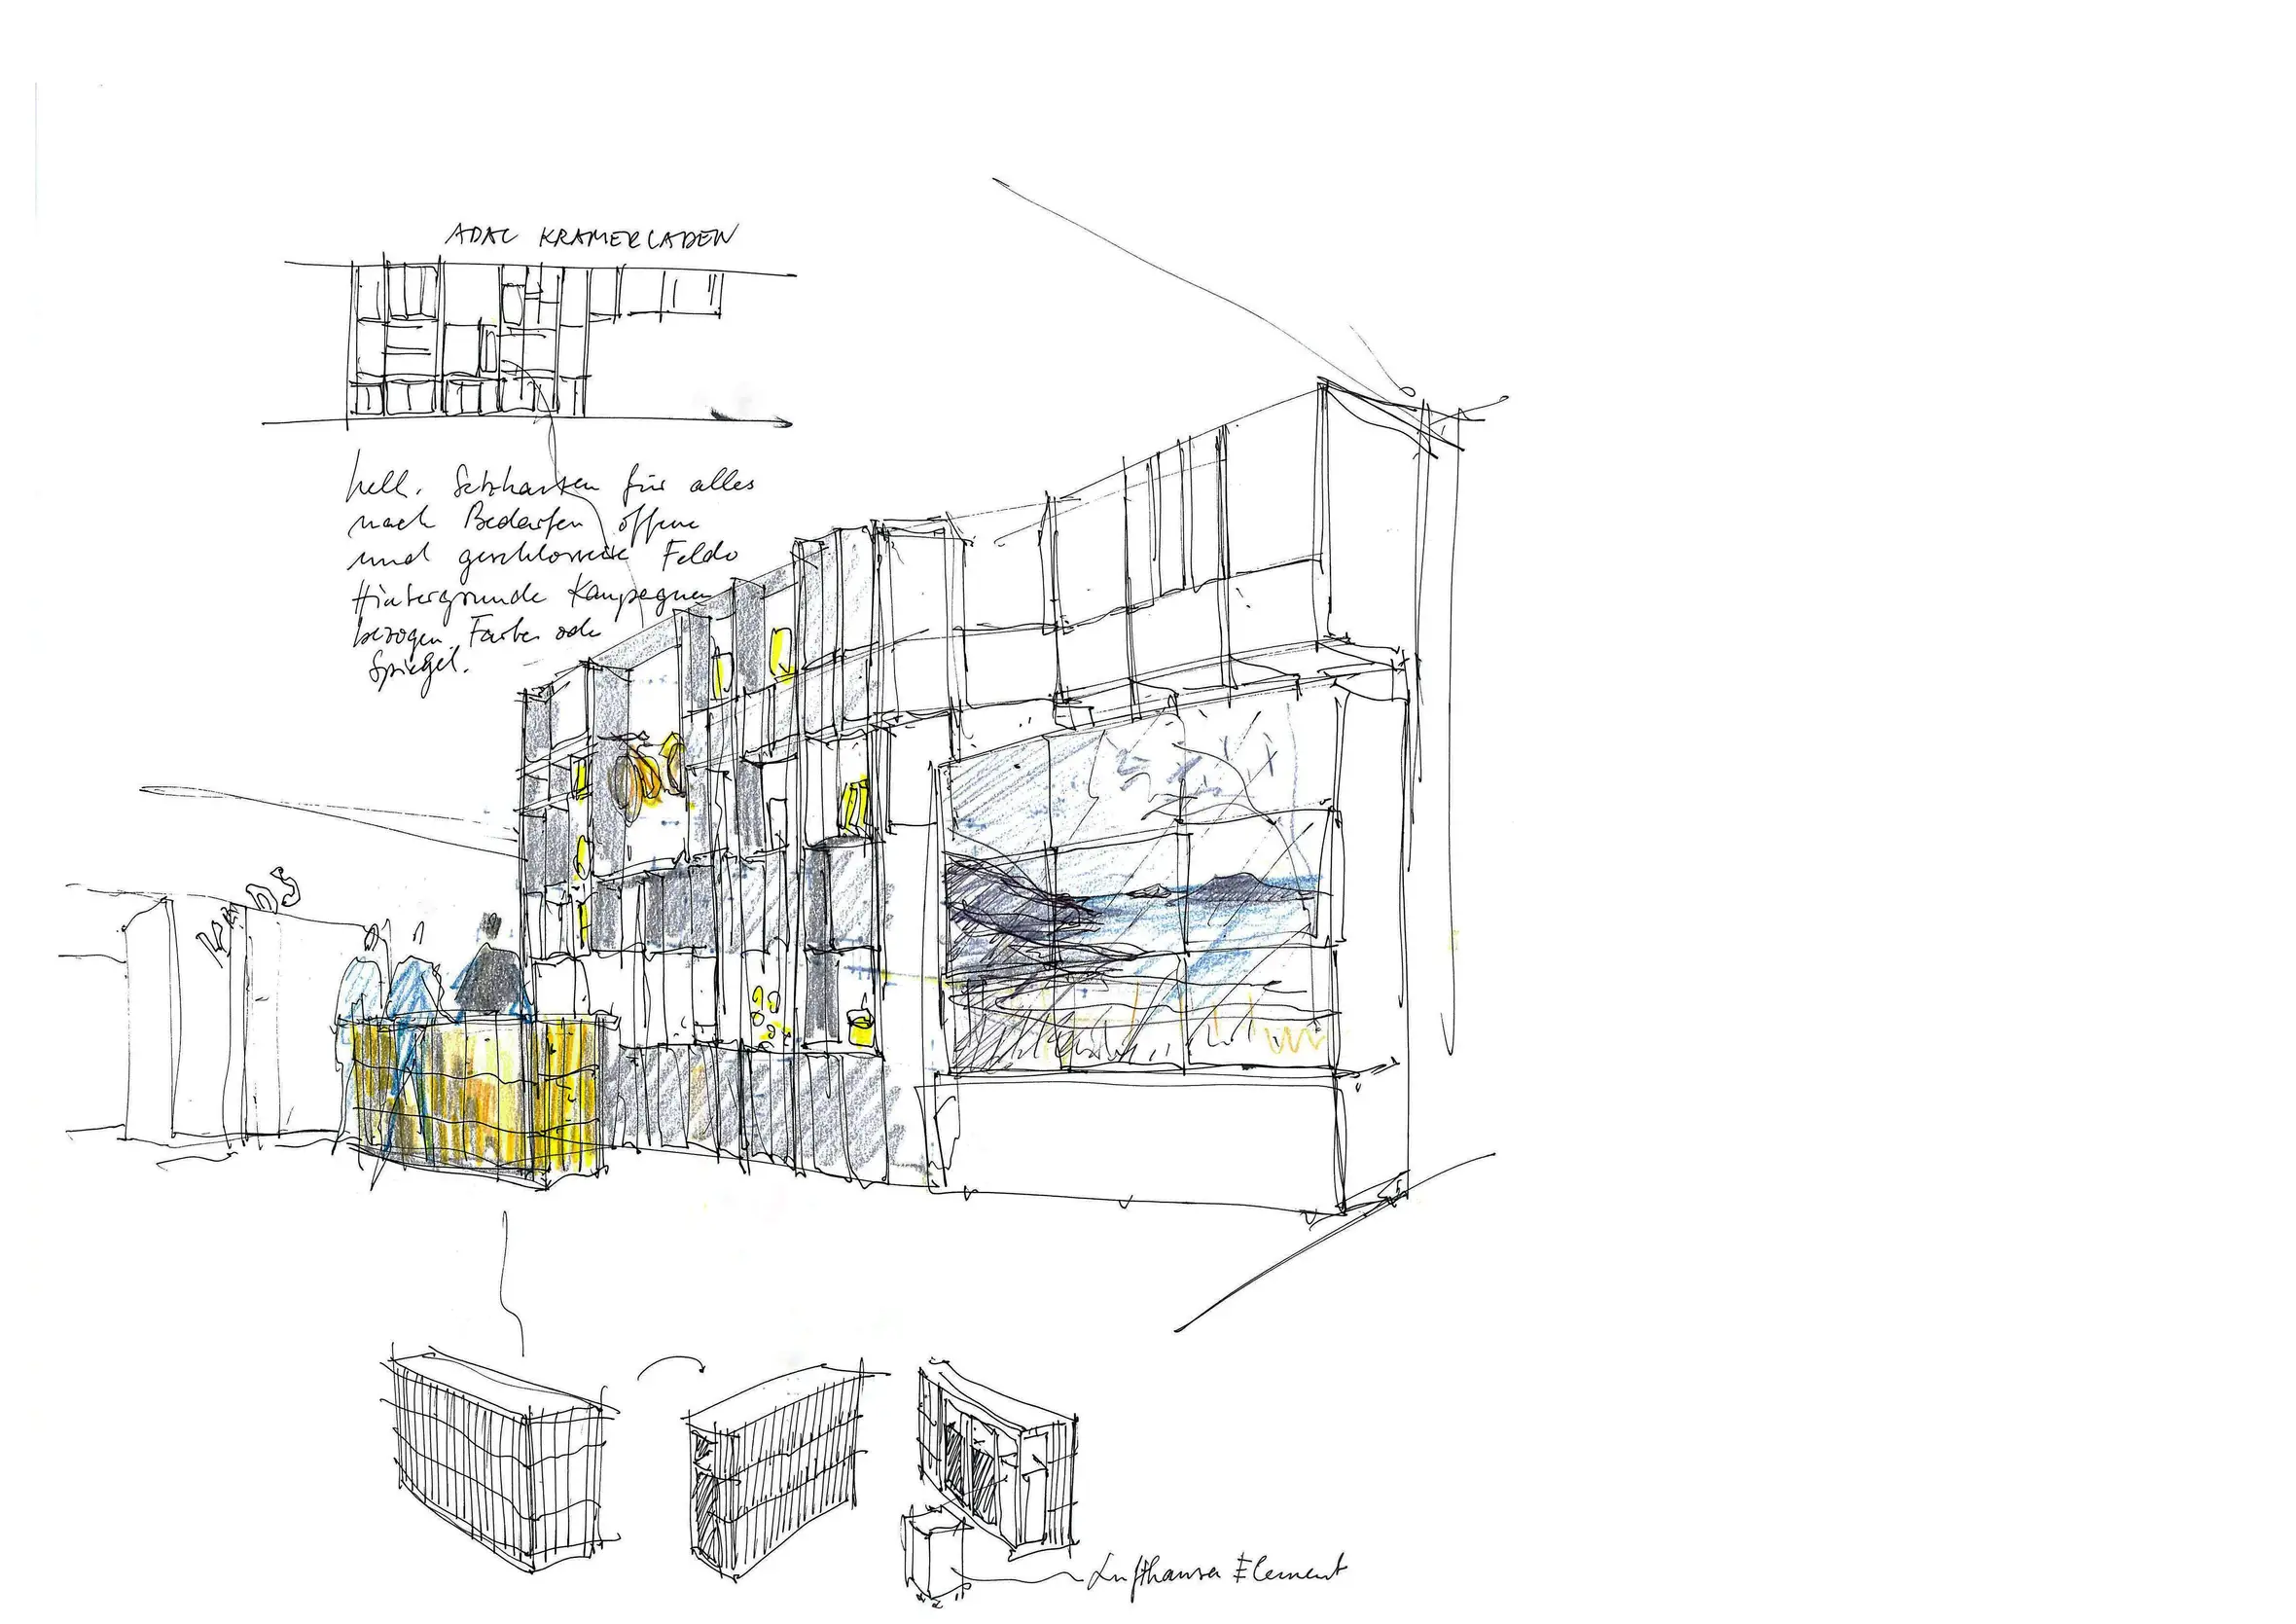 ADAC KRAMERLADEN
hell. Setzkasten für alles
nach Bedarfen offene
und geschlossene Felder
Hintergründe Kampagnen
bezogen. Farbe oder
Spiegel.
KINDS
Lufthansa Element